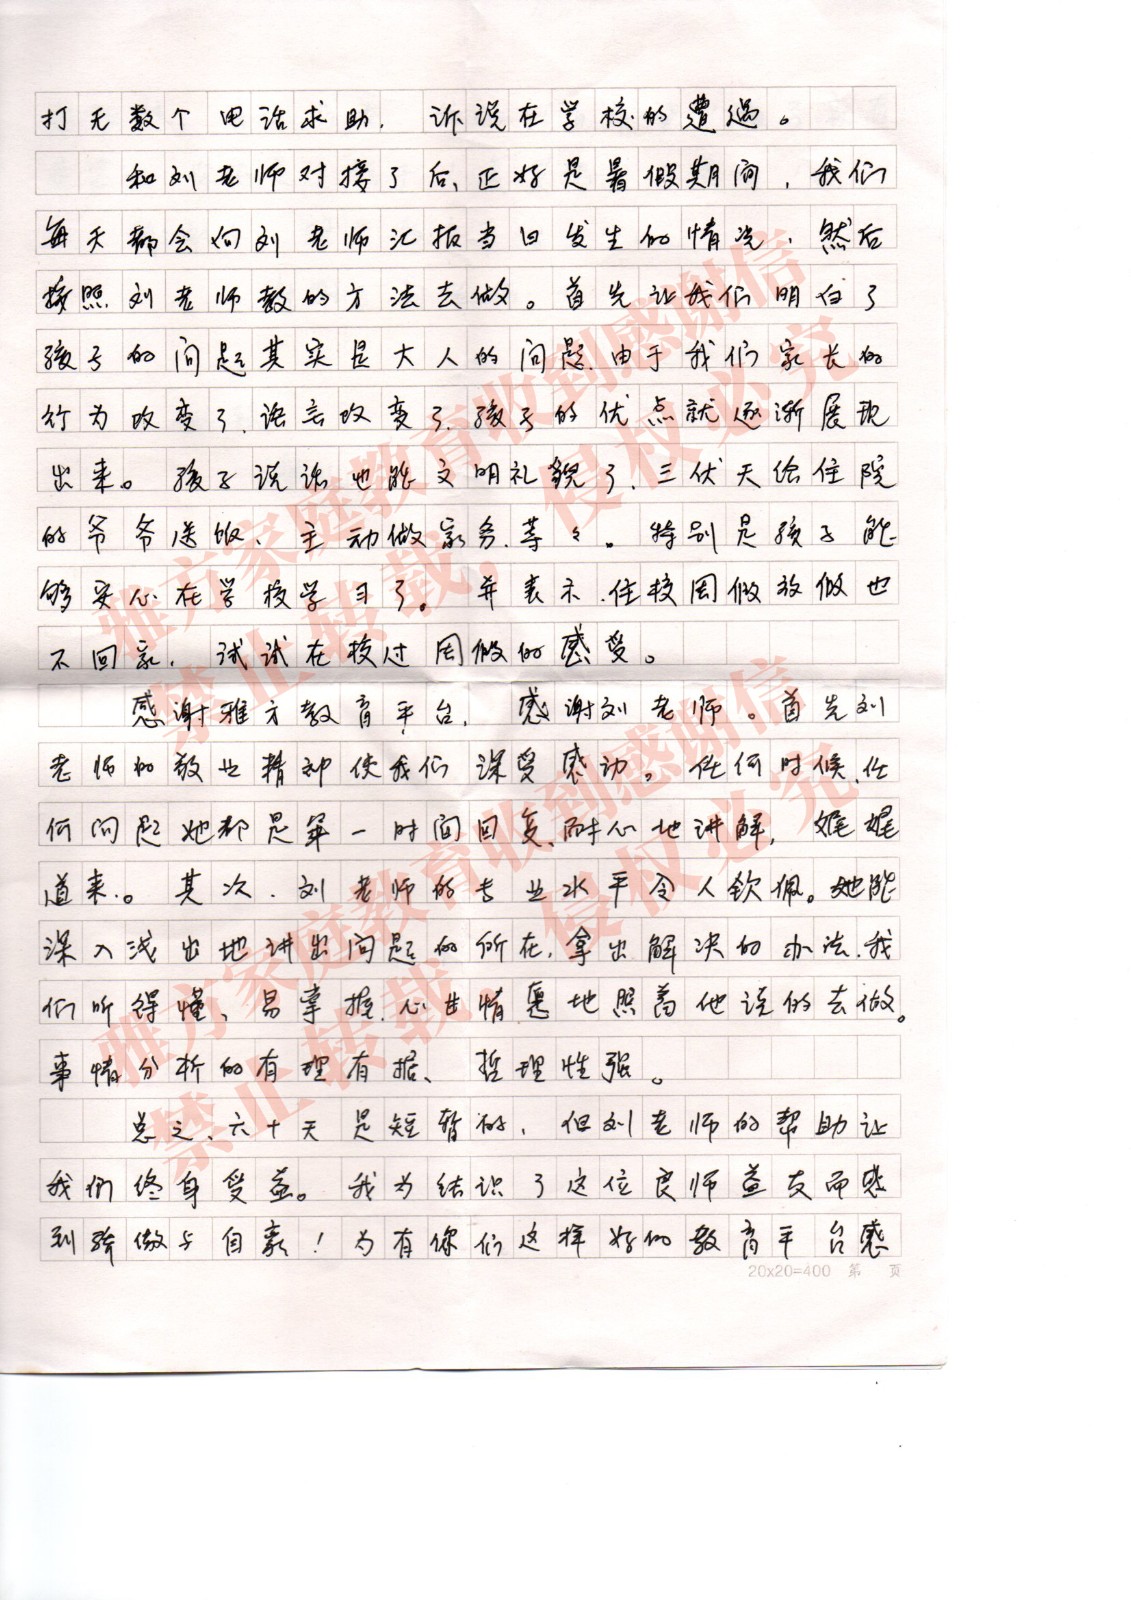 打无数个电话求助，诉说在学校的遭遇。
和刘老师对接了后、正好是暑假期间，我们
每天都会向刘老师汇报当日发生的情况，然后
按照刘老师教的方法去做。首先让我们明白了
孩子的问题其实是大人的问题.由于我们家长的
行为改变了、语言改变了、孩子的优点就逐渐展现
出来。孩子说话也能文明礼貌了、三伏天给住院
的爷爷送饭、主动做家务、等々。特别是孩子能
够安心在学校学习了。并表示.住校周假放假也
不回家，试试在校过周假的感受。
感谢雅方教育平台，感谢刘老师。首先刘
老师的敬业精神使我们深受感动。任何时候.任
何问题她都是第一时间回复、耐心地讲解，娓娓
道来。其次.刘老师的专业水平令人钦佩。她能
深入浅出地讲出问题的所在，拿出解决的办法.我
们听得懂、易掌握、心甘情愿地照着他说的去做。
事情分析的有理有据、哲理性强。
总之、六十天是短暂的，但刘老师的帮助让
我们终身受益。我为结识了这位良师益友而感
到骄傲与自豪！为有你们这样好的教育平台感
20x20=400 第 页
雅方家庭教育收到感谢信
禁止转载，侵权必究
雅方家庭教育收到感谢信
禁止转载，侵权必究